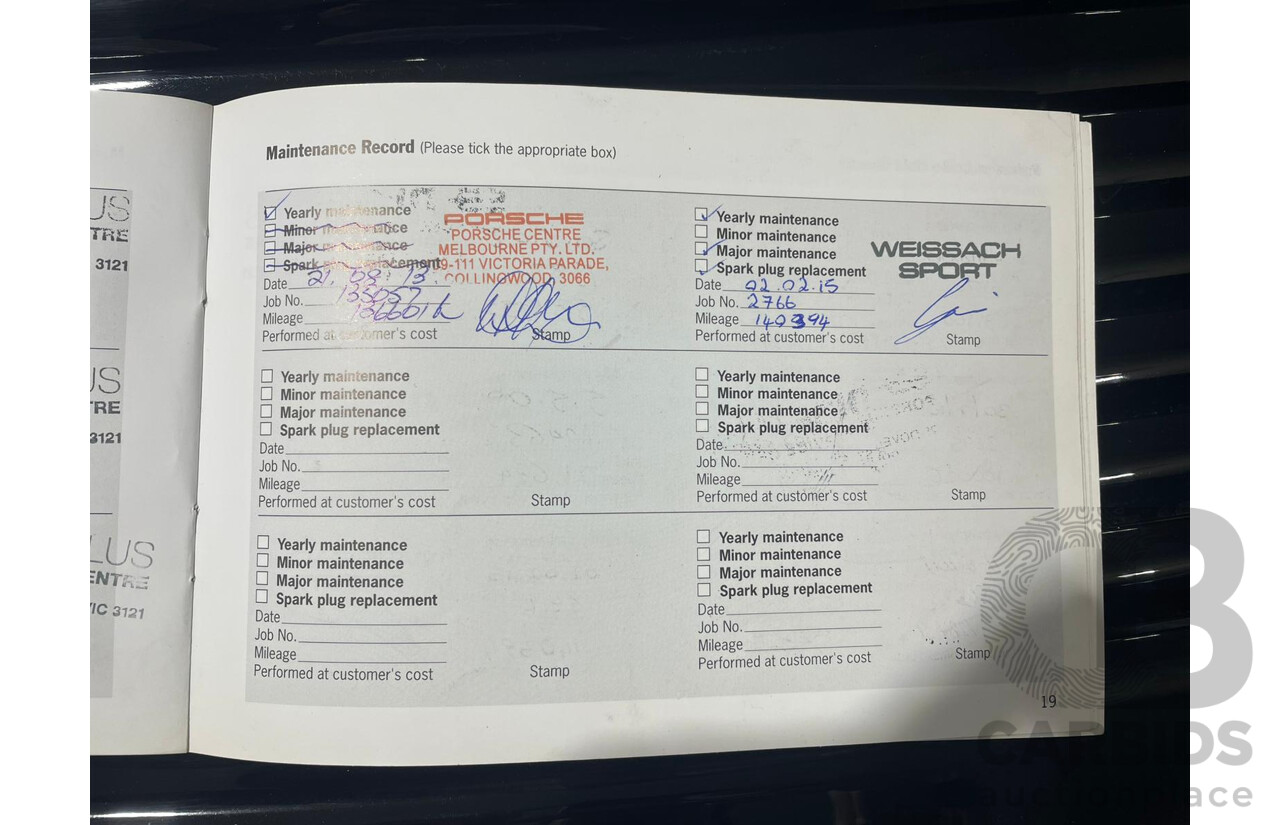 US
TRE
3121
US
TRE
3121
LUS
ENTRE
VIC 3121
Maintenance Record (Please tick the appropriate box)
Yearly maintenance
Minor maintenance
Major maintenance
Spark plug replacement
Date 21.
Job No. 135057
Mileage
Performed at customer's cost
Stamp
PORSCHE
PORSCHE CENTRE
MELBOURNE PTY. LTD.
9-111 VICTORIA PARADE,
COLLINGWOOD, 3066
Yearly maintenance
Minor maintenance
Major maintenance
Spark plug replacement
Date 02.02.15
Job No. 2766
Mileage 140394
Performed at customer's cost
Stamp
WEISSACH
SPORT
Yearly maintenance
Minor maintenance
Major maintenance
Spark plug replacement
Date
Job No.
Mileage
Performed at customer's cost
Stamp
Yearly maintenance
Minor maintenance
Major maintenance
Spark plug replacement
Date
Job No.
Mileage
Performed at customer's cost
Stamp
Yearly maintenance
Minor maintenance
Major maintenance
Spark plug replacement
Date
Job No.
Mileage
Performed at customer's cost
Stamp
Yearly maintenance
Minor maintenance
Major maintenance
Spark plug replacement
Date
Job No.
Mileage
Performed at customer's cost
Stamp
19
CB
CARBIDS
auctionplace